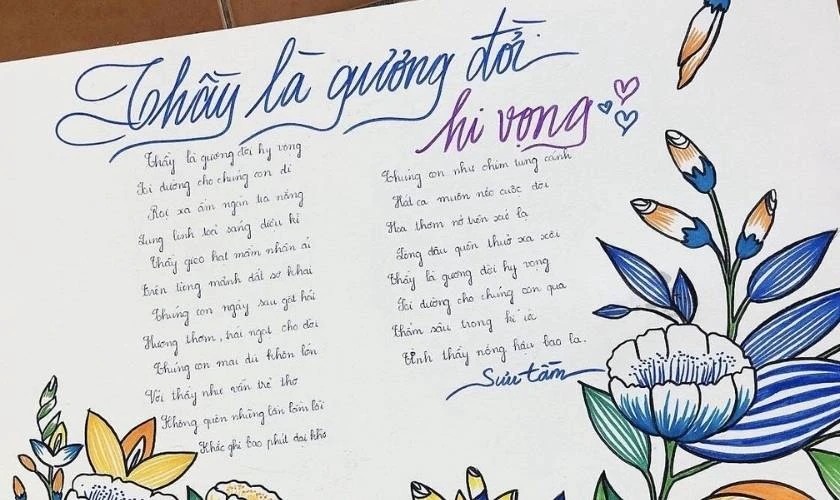 Thầy là gương đời
hi vọng
Thầy là gương đời hy vọng
Soi đường cho chúng con đi
Rọi xa ấm ngàn tia nắng
Lung linh soi sáng diệu kì
Thầy gieo hạt mầm nhân ái
Trên từng mảnh đất sơ khai
Chúng con ngày sau gặt hái
Hương thơm, trái ngọt cho đời
Chúng con mai dù khôn lớn
Với thầy như vẫn trẻ thơ
Không quên những lần lầm lỗi
Khắc ghi bao phút dại khờ
Chúng con như chim tung cánh
Hát ca muôn nẻo cuộc đời
Hoa thơm nở trên xứ lạ
Lòng đâu quên thuở xa xôi
Thầy là gương đời hy vọng
Soi đường cho chúng con qua
Thẳm sâu trong kí ức
Tình thầy nồng hậu bao la.
Sưu tầm